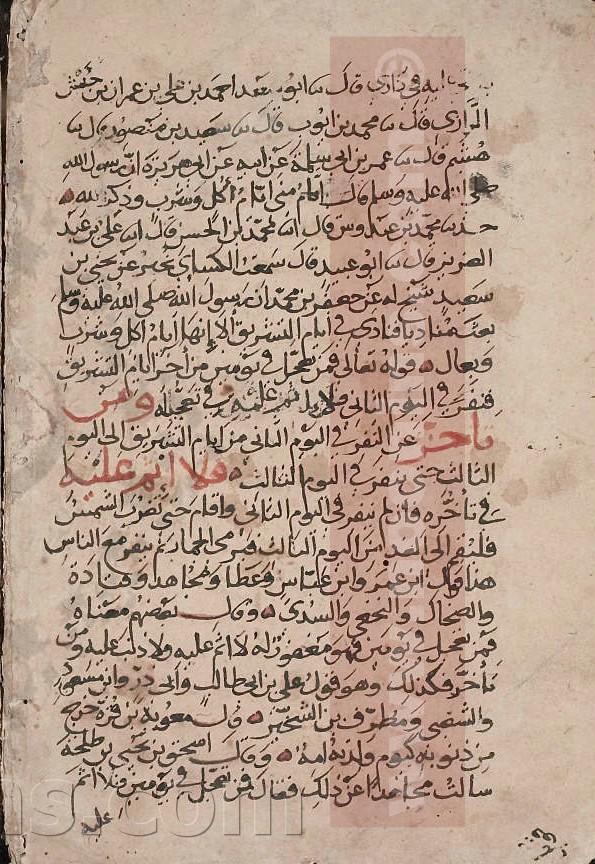 به في داري قال نا ابو سعد احمد بن علي بن عمران بن حبش
الرازي قال نا محمد بن ايوب قال نا سعيد بن منصور قال نا
هشيم قال نا عمر بن ابي سلمة عن ابيه عن ابي هريرة ان رسول الله
صلى الله عليه وسلم قال ايام منى ايام اكل وشرب وذكر لله
حدثنا محمد بن عبدوس قال نا محمد بن الحسن قال انا علي بن عبد
العزيز قال نا ابو عبيد قال سمعت الكسائي يخبر عن يحيى بن
سعيد شيخ له عن جعفر بن محمد ان رسول الله صلى الله عليه وسلم
بعث مناديا فنادى في ايام التشريق الا إنها ايام اكل وشرب
وبعال قوله تعالى فمن تعجل في يومين من اخر ايام التشريق
فنفر في اليوم الثاني فلا اثم عليه في تعجله ومن
تأخر عن النفر في اليوم الثاني من ايام التشريق الى اليوم
الثالث حتى ينفر في اليوم الثالث فلا اثم عليه
في تأخره فان لم ينفر في اليوم الثاني واقام حتى تغرب الشمس
فلينفر الى الغد من اليوم الثالث فيرمي الجمار ثم ينفر مع الناس
هذا قول ابن عمر وابن عباس وعطا ومجاهد وقتادة
والضحاك والنخعي والسدي وقال بعضهم معناه
فمن تعجل في يومين فهو مغفور له لا اثم عليه ولا ذنب عليه ومن
تأخر فكذلك وهو قول علي بن ابي طالب وابي ذر وابن مسعود
والشعبي ومطرف بن الشخير قال معوية بن قرة خرج
من ذنوبه كيوم ولدته امه وقال اسحق بن يحيى بن طلحة
سالت مجاهدا عن ذلك فقال فمن تعجل في يومين فلا اثم
عليه